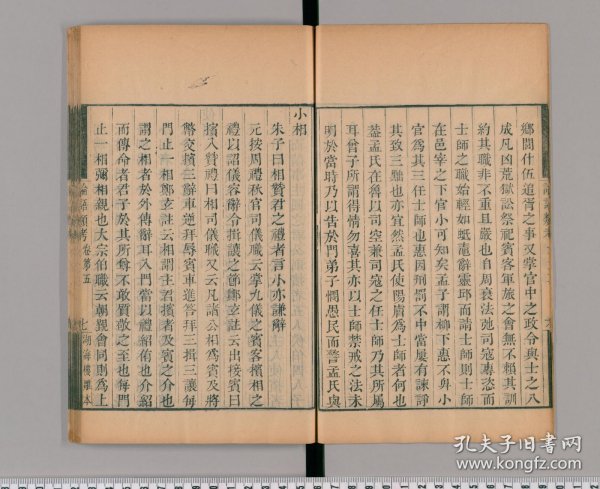 鄉閭什伍追胥之事又掌官中之政令與士之八
成凡凶荒獄訟祭祀賓客軍旅之會無不賴其訓
約其職非不重且嚴也自周衰法弛司寇專恣而
士師之職始輕如蚳鼃辭靈邱而請士師則士師
在邑宰之下官小可知矣孟子謂柳下惠不卑小
官爲其三任士師也惠因刑罰不中當屢有諫諍
其致三黜也亦宜然孟氏使陽膚爲士師者何也
蓋孟氏在魯以司空兼司寇之任士師乃其所屬
耳曾子所謂得情勿喜其亦以士師禁戒之法未
明於當時乃以告於門弟子憫愚民而警孟氏與
小相
朱子曰相贊君之禮者言小亦謙辭
元按周禮秋官司儀職云掌九儀之賓客擯相之
禮以詔儀容辭令揖讓之節鄭玄註云出接賓曰
擯入贊禮曰相司儀職又云凡諸公相爲賓及將
幣交擯三辭車逆拜辱賓車進答拜三揖三讓每
門止一相鄭玄註云相謂主君擯者及賓之介也
謂之相者於外傳辭耳入門當以禮紹侑也介紹
而傳命者君子於其所尊不敢質敬之至也每門
止一相彌相親也大宗伯職云朝覲會同則爲上
論語類考 卷第五
七
湖海樓雕本
孔夫子旧书网
www.kongfz.com